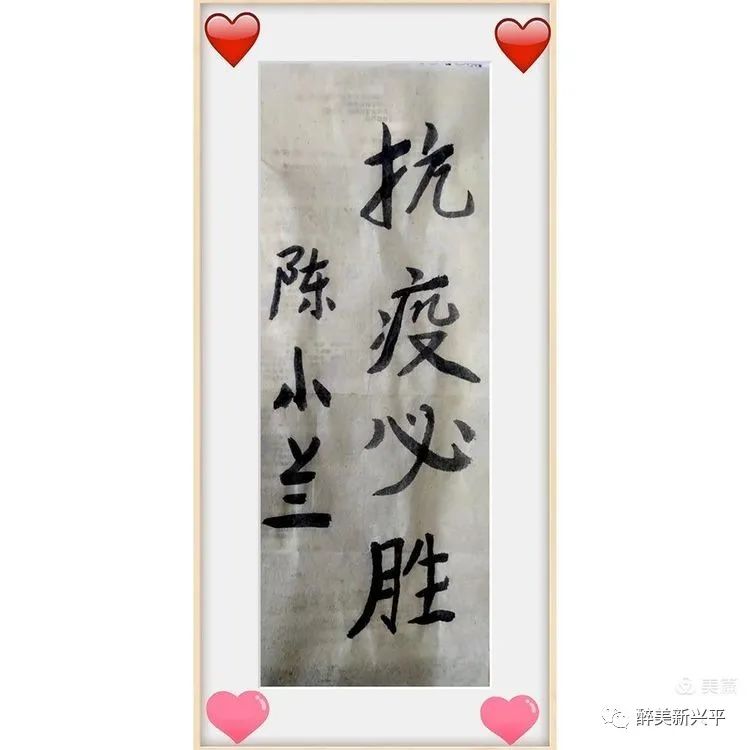 抗疫必胜
陈小兰
美篇
醉美新兴平